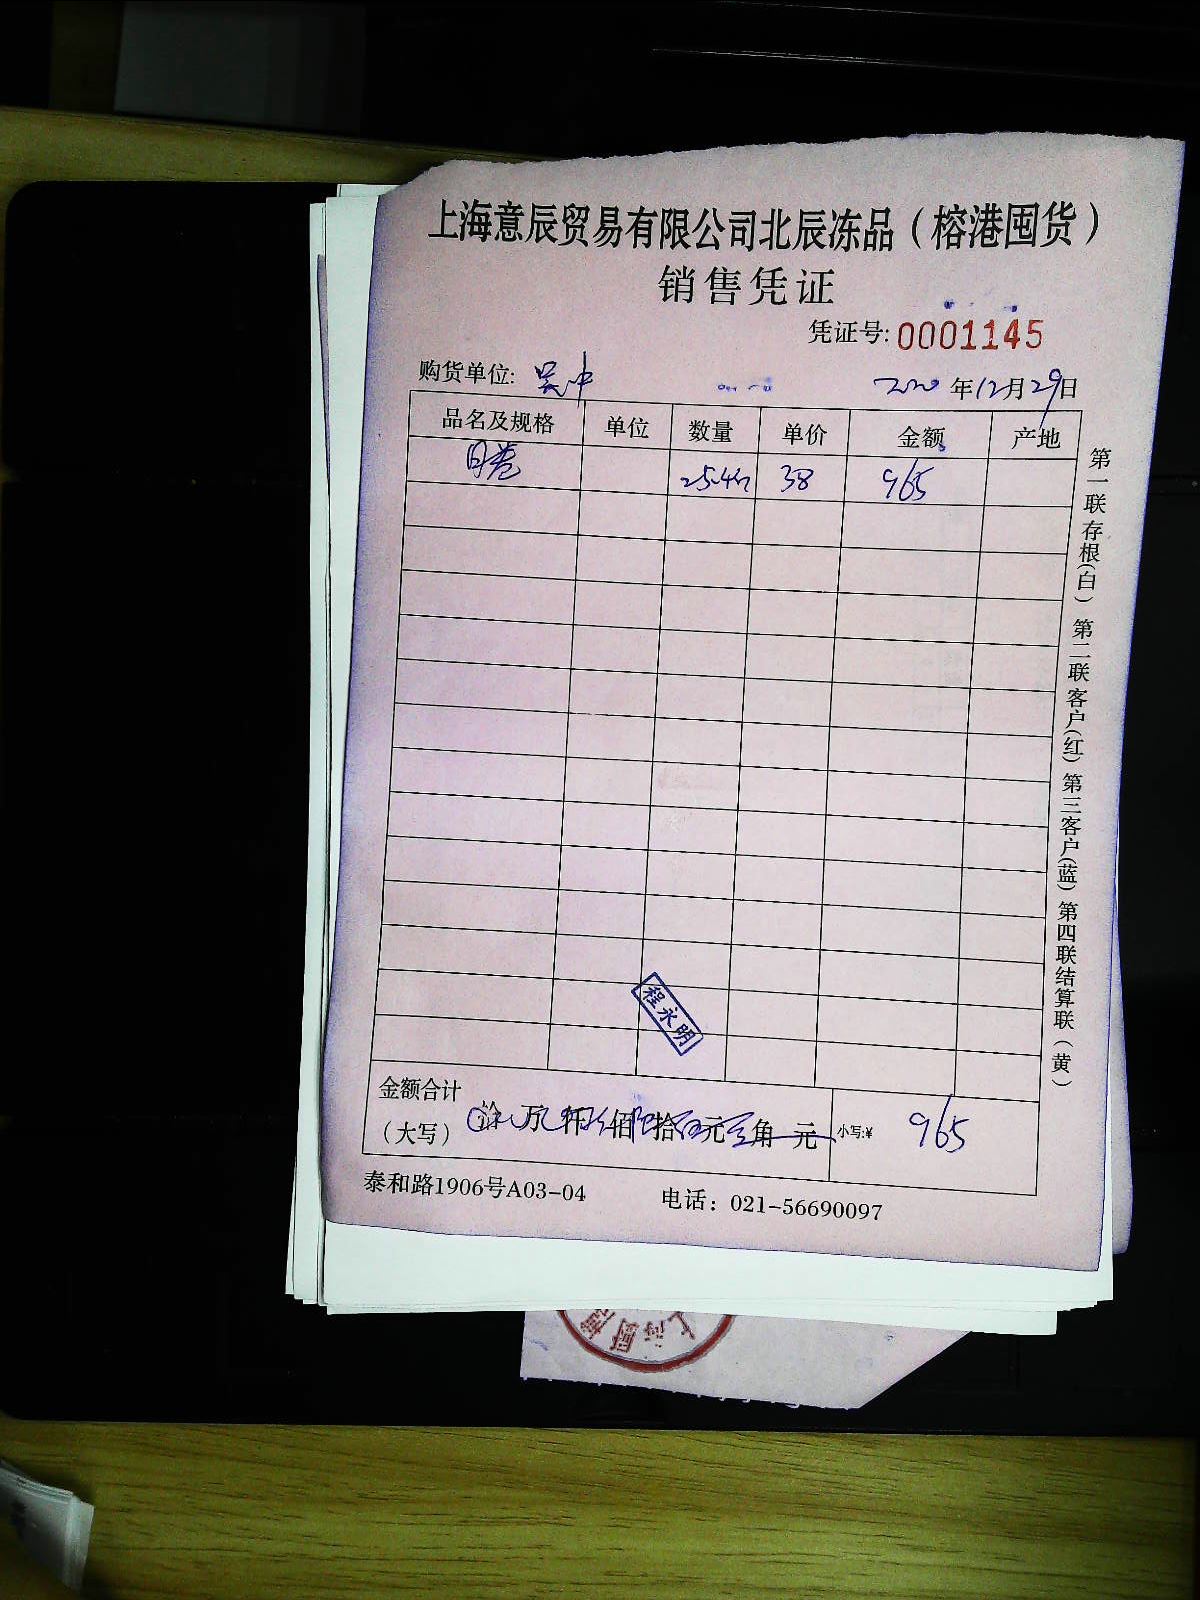 上海意辰贸易有限公司北辰冻品（榕港囤货）
销售凭证
凭证号: 0001145
购货单位: 吴中
2020 年 12 月 29 日
品名及规格 单位 数量 单价 金额 产地
25.4 38 965
程永明
金额合计
（大写） 万 仟 佰 拾 元 角 元 小写:¥ 965
泰和路1906号A03-04 电话：021-56690097
第一联存根（白）第二联客户（红）第三客户（蓝）第四联结算联（黄）
上海厨